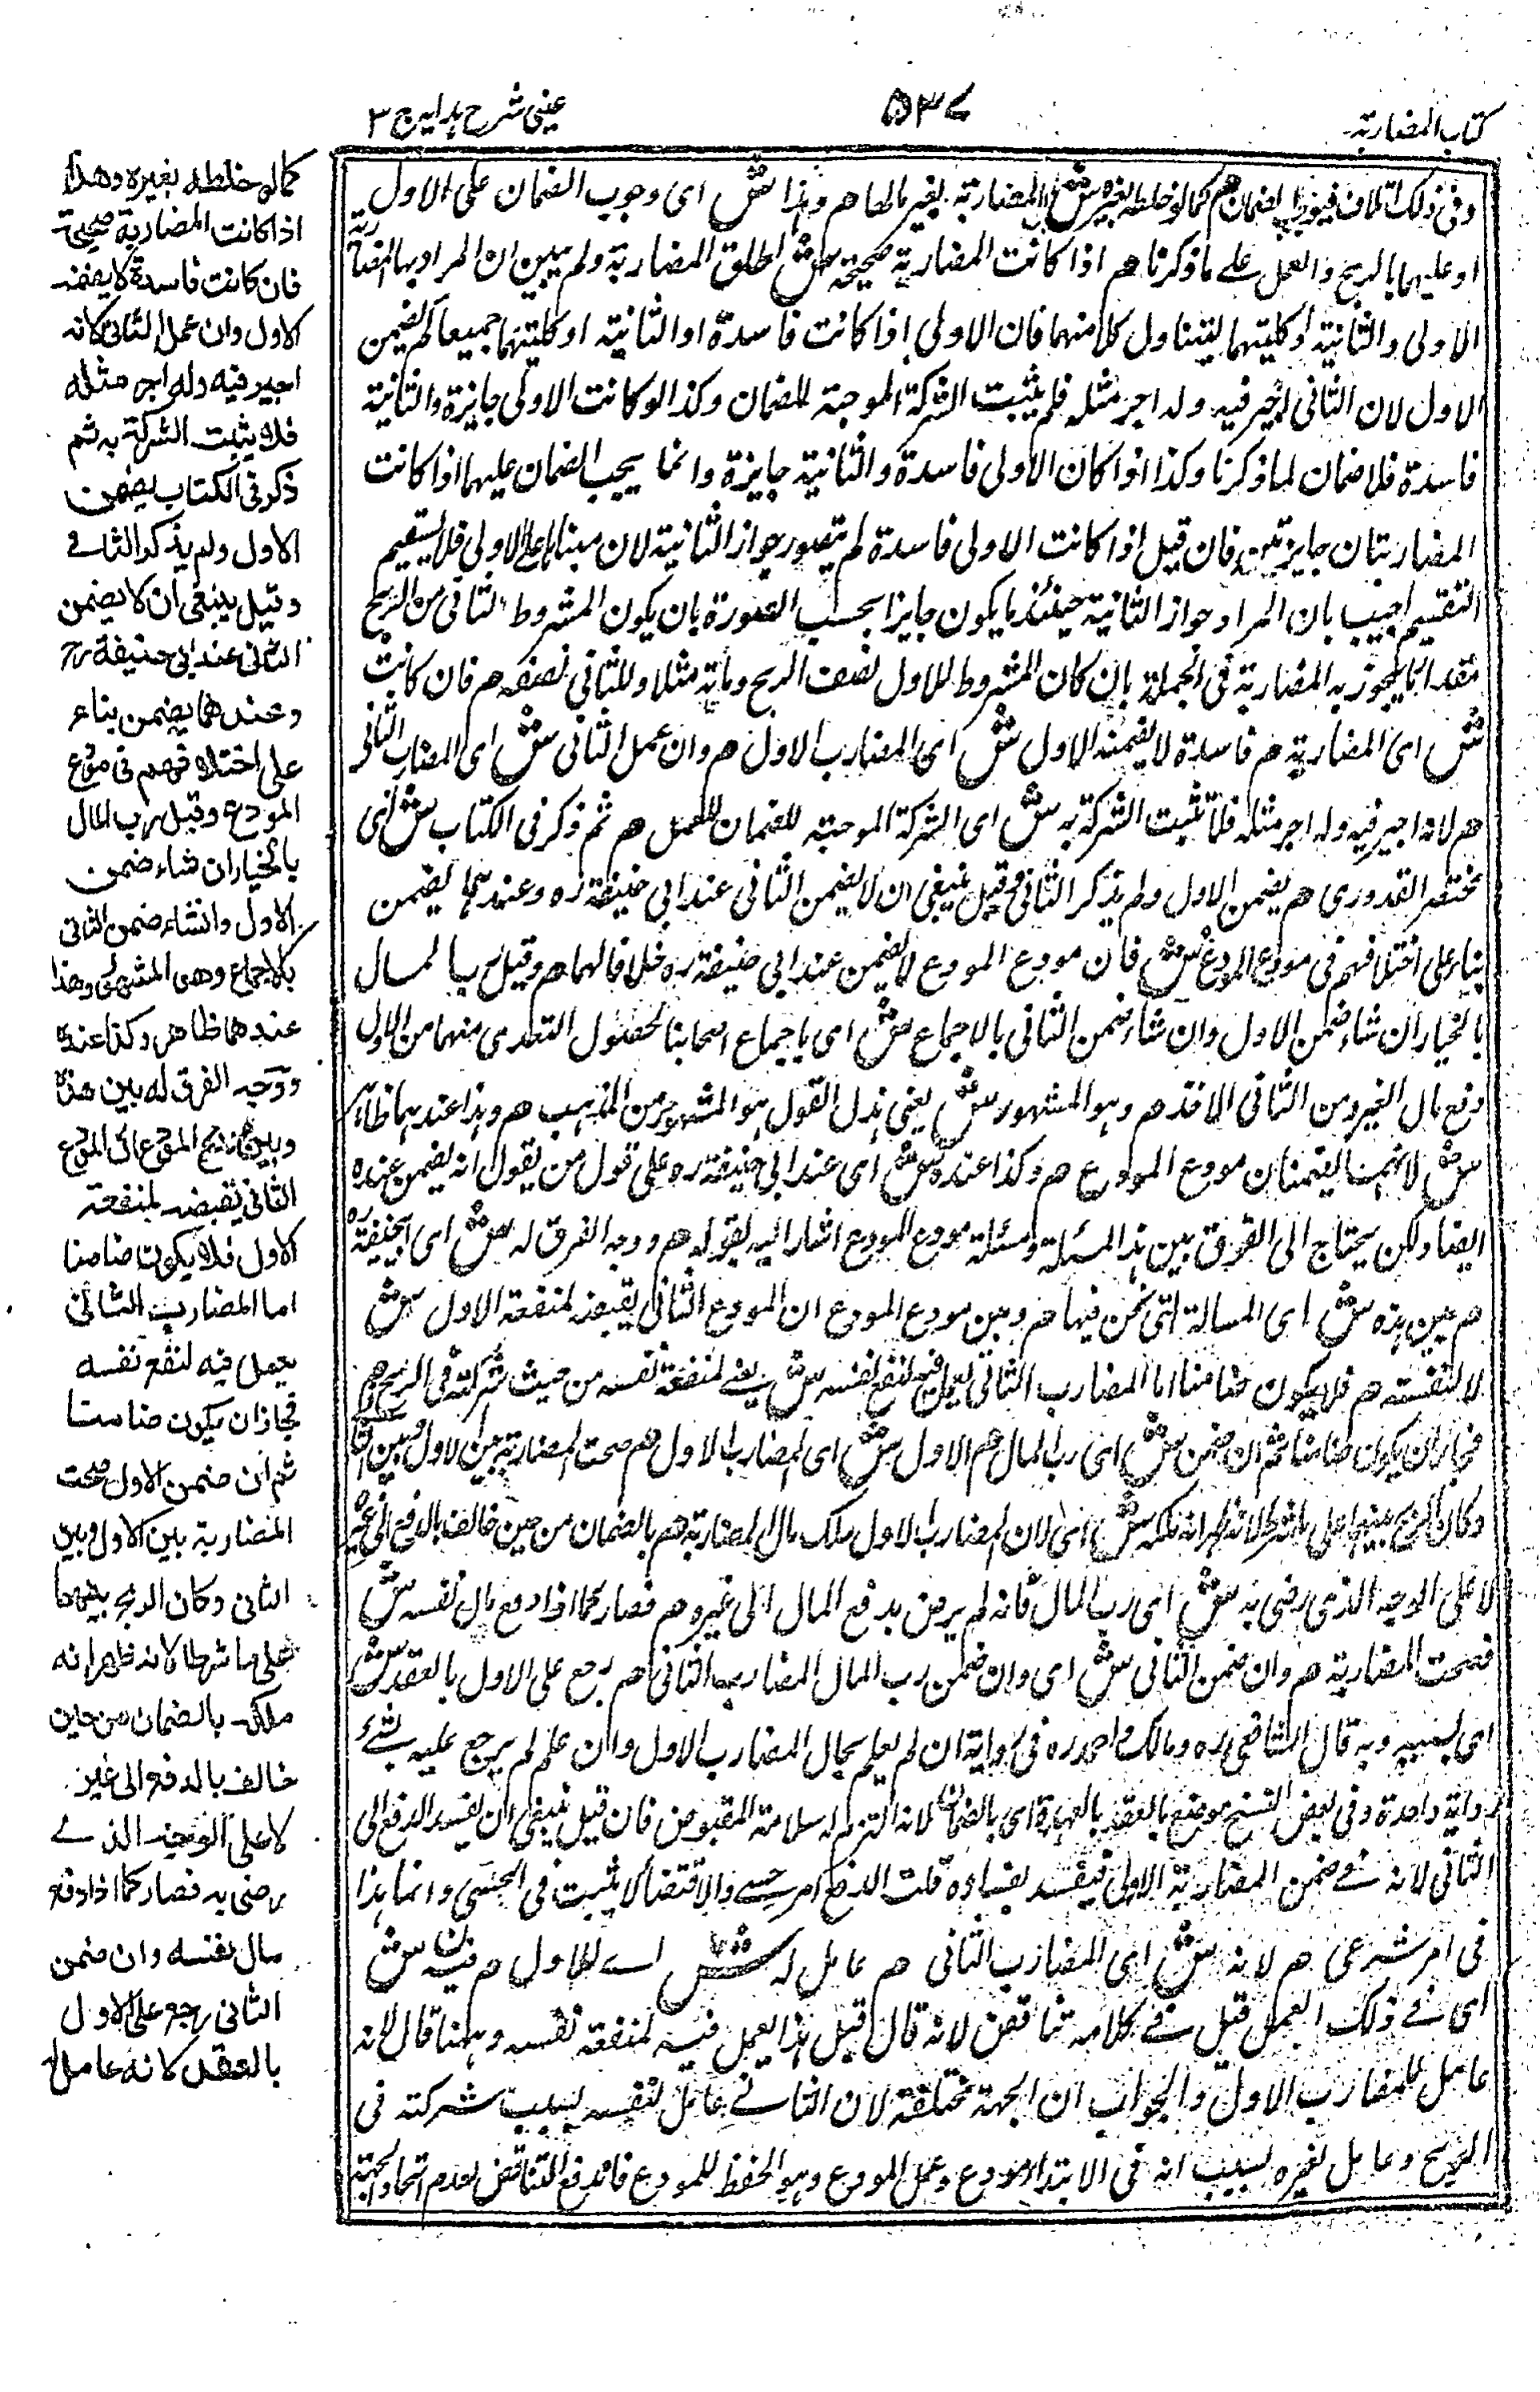 كتاب المضاربة
٥٣٧
عینی شرح ہدایہ ج ٣
وفي ذلك اتلاف فيوجب الضمان هم كما لو خلطه بغيره ش المضاربة بغير مالها هم وهذا ش اى وجوب الضمان على الاول
او عليهما بالربح والعمل على ما ذكرنا هم اذا كانت المضاربة صحيحة ش اطلق المضاربة ولم يبين ان المراد بها المضاربة
الاولى والثانية او كليتهما ليتناول كلا منهما فان الاولى اذا كانت فاسدة او الثانية او كليتهما جميعا لم يضمن
الاول لان الثاني اجير فيه وله اجر مثله فلم يثبت الشركة الموجبة للضمان وكذا لو كانت الاولى جايزة والثانية
فاسدة فلا ضمان لما ذكرنا وكذا اذا كان الاولى فاسدة والثانية جايزة وانما يجب الضمان عليهما اذا كانت
المضاربتان جايزتين فان قيل اذا كانت الاولى فاسدة لم يتصور جواز الثانية لان مبناها على الاولى فلا يستقيم
التقسيم اجيب بان المراد جواز الثانية حينئذ ما يكون جايزا بحسب الصورة بان يكون المشروط للثاني من الربح
مقدار ما يجوز به المضاربة في الجملة بان كان المشروط للاول نصف الربح ومائة مثلا وللثاني نصفه هم فان كانت
ش اى المضاربة هم فاسدة لا يضمنه الاول ش اى المضارب الاول هم وان عمل الثاني ش اى المضارب الثاني
هم لانه اجير فيه وله اجر مثله فلا تثبت الشركة به ش اى الشركة الموجبة للضمان للعمل هم ثم ذكر في الكتاب ش اى
مختصر القدورى هم يضمن الاول ولم يذكر الثاني وقيل ينبغي ان لا يضمن الثاني عند ابي حنيفة ره وعندهما يضمن
بناء على اختلافهم في مودع المودع ش فان مودع المودع لا يضمن عند ابي حنيفة ره خلافا لهما هم وقيل رب المال
بالخيار ان شاء ضمن الاول وان شاء ضمن الثاني بالاجماع ش اى باجماع اصحابنا لحصول التعدى منهما من الاول
دفع مال الغير ومن الثاني الاخذ هم وهو المشهور ش يعني هذا القول هو المشهور من المذهب هم وهذا عندهما ظاهر
ش لانهما يضمنان مودع المودع هم وكذا عنده ش اى عند ابي حنيفة ره على قول من يقول انه يضمن عنده
ايضا ولكن يحتاج الى الفرق بين هذه المسئلة ومسئلة مودع المودع اشار اليه بقوله هم ووجه الفرق له ش اى لابي حنيفة ره
هم بين هذه ش اى المسالة التي نحن فيها هم وبين مودع المودع ان المودع الثاني يقبضه لمنفعة الاول ش
لا لنفسه هم فلا يكون ضامنا اما المضارب الثاني يعمل فيه لنفع نفسه ش يعنے لمنفعة نفسه من حيث شركته في الربح هم
فجاز ان يكون ضامنا ثم ان ضمن ش اى رب المال هم الاول ش اى المضارب الاول هم صحت المضاربة بين الاول وبين الثاني
وكان الربح بينهما على ما شرطا لانه ظهر انه ملكه ش اى لان المضارب الاول ملك مال المضاربة هم بالضمان من حين خالف بالدفع الى غيره
لا على الوجه الذى رضى به ش اى رب المال فانه لم يرض بدفع المال الى غيره هم فصار كما اذا دفع مال نفسه ش
فصحت المضاربة هم وان ضمن الثاني ش اى وان ضمن رب المال المضارب الثاني هم رجع على الاول بالعقد ش
اى بسببه وبه قال الشافعي ره ومالك واحمد ره في رواية ان لم يعلم بحال المضارب الاول وان علم لم يرجع عليه بشئ
رواية واحدة وفي بعض النسخ موضع بالعقد بالعهدة اى بالضمان لانه التزم له سلامة المقبوض فان قيل ينبغي ان يفسد الدفع الى
الثاني لانه في ضمن المضاربة الاولى فيفسد بفساده قلت الدفع امر حسے والاقتضاء لا يثبت في الحسى وانما هذا
في امر شرعى هم لانه ش اى المضارب الثاني هم عامل له ش اے للاول هم فيه ش
اى في ذلك العمل قيل في كلامه تناقض لانه قال قبل هذا يعمل فيه لمنفعة نفسه وههنا قال لانه
عامل للمضارب الاول والجواب ان الجهة مختلفة لان الثانے عامل لنفسه بسبب شركته في
الربح وعامل لغيره بسبب انه في الابتداء مودع وعمل المودع وهو الحفظ للمودع فاندفع التناقض لعدم اتحاد الجهة
كما لو خلطه بغيره وهذا
اذا كانت المضاربة صحيحة
فان كانت فاسدة لا يضمنه
الاول وان عمل الثاني لانه
اجير فيه وله اجر مثله
فلا يثبت الشركة به ثم
ذكر في الكتاب يضمن
الاول ولم يذكر الثانے
وقيل ينبغي ان لا يضمن
الثاني عند ابي حنيفة رح
وعندهما يضمن بناء
على اختلافهم في مودع
المودع وقيل رب المال
بالخيار ان شاء ضمن
الاول وان شاء ضمن الثاني
بالاجماع وهو المشهور وهذا
عندهما ظاهر وكذا عنده
ووجه الفرق له بين هذه
وبين مودع المودع ان المودع
الثاني يقبضه لمنفعة
الاول فلا يكون ضامنا
اما المضارب الثاني
يعمل فيه لنفع نفسه
فجاز ان يكون ضامنا
ثم ان ضمن الاول صحت
المضاربة بين الاول وبين
الثاني وكان الربح بينهما
على ما شرطا لانه ظهر انه
ملكه بالضمان من حين
خالف بالدفع الى غيره
لا على الوجه الذے
رضى به فصار كما اذا دفع
مال نفسه وان ضمن
الثاني رجع على الاول
بالعقد لانه عامل له